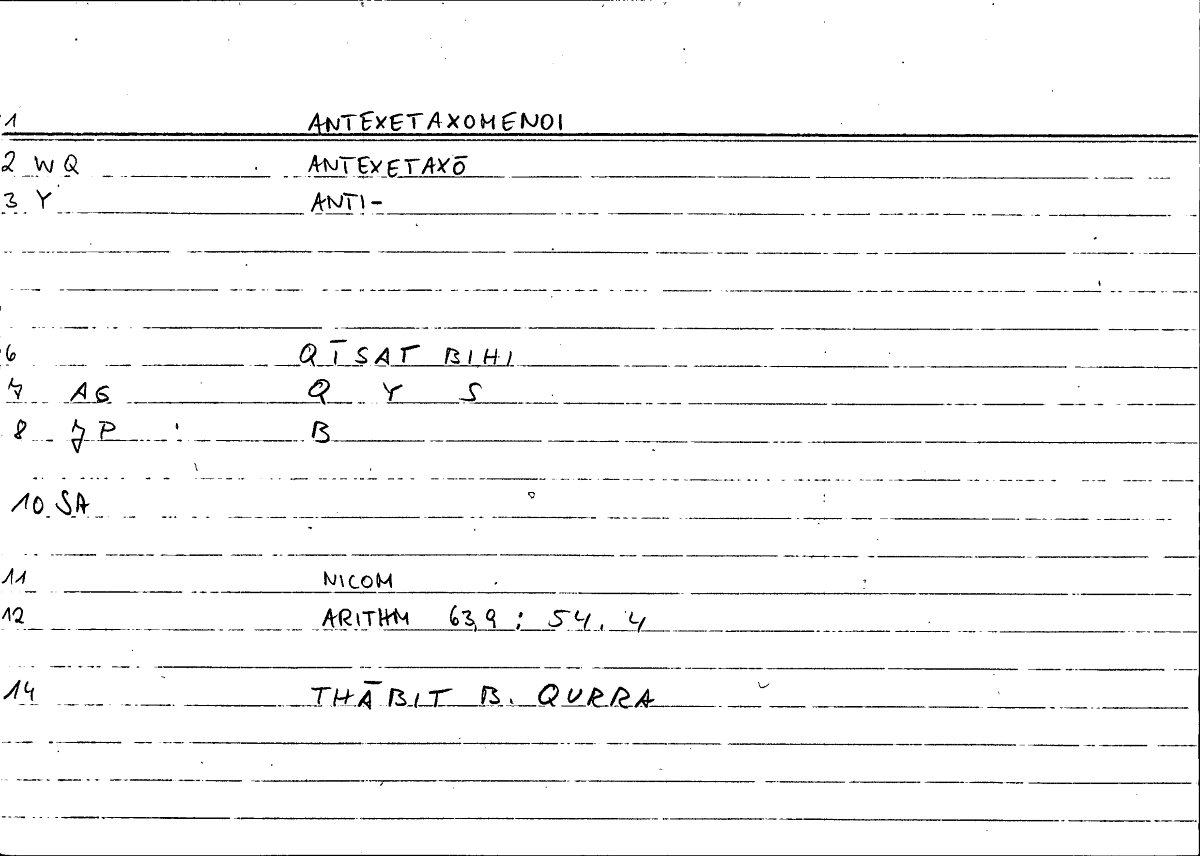 1 ANTEXETAXOMENOI
2 WQ ANTEXETAXŌ
3 Y ANTI-
6 QĪSAT BIHI
7 AG Q Y S
8 JP B
10 SA
11 NICOM
12 ARITHM 63,9 ; 54. 4
14 THĀBIT B. QURRA